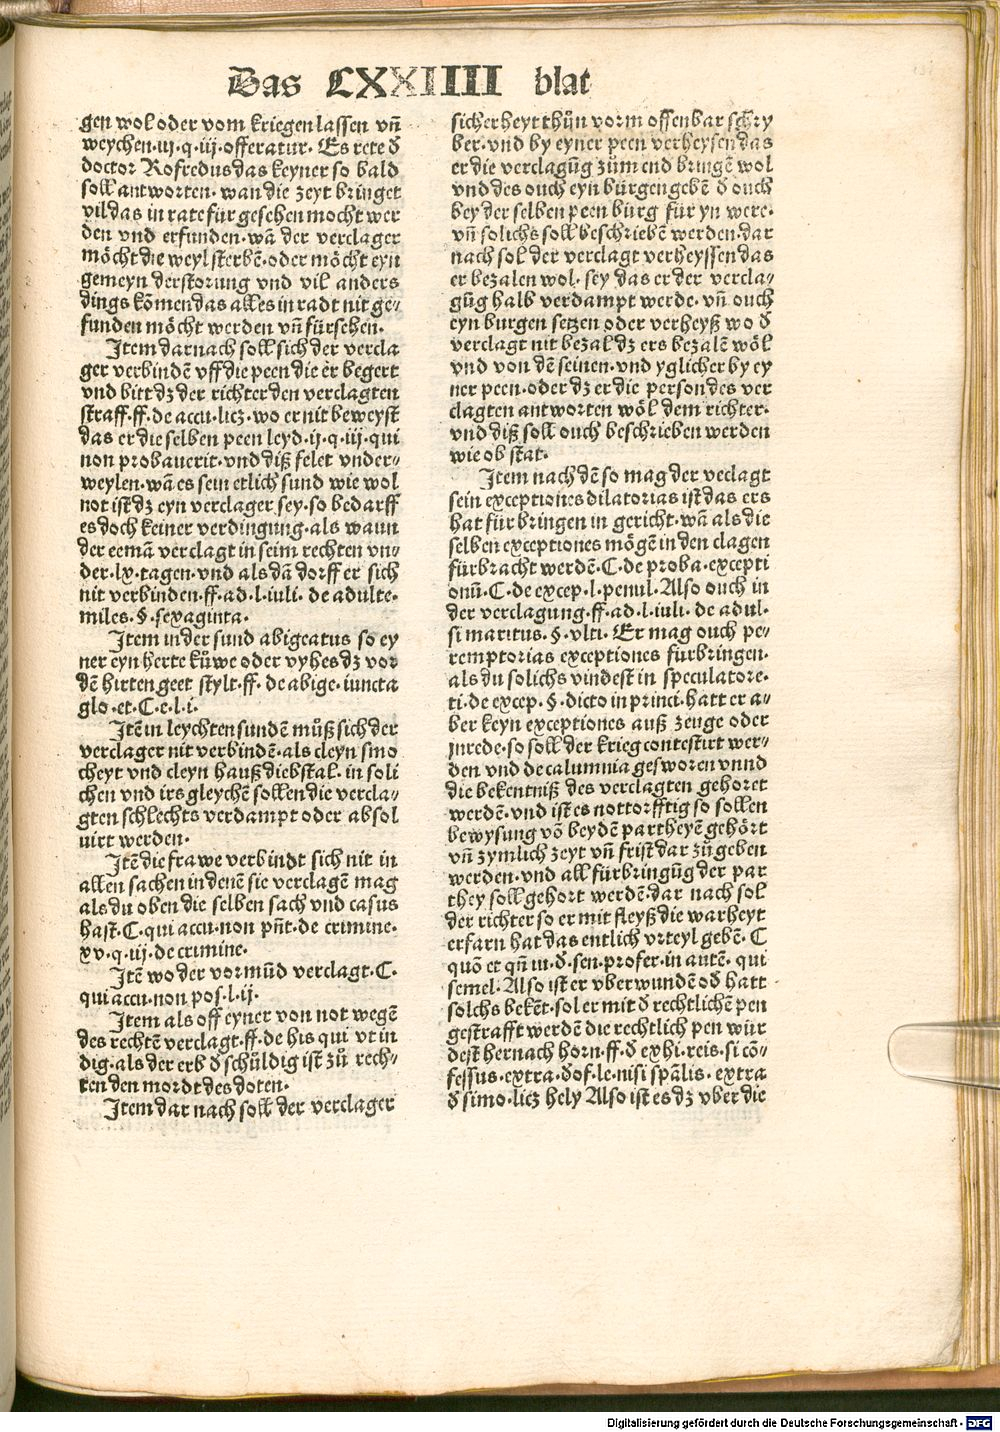 Das LXXIIIII blat
gen wol oder vom kriegen lassen vn̄
weychen·iij·q·iij·offeratur· Es rete d̄
doctor Rofredus das keyner so bald
soll antworten· wan die zeyt bringet
vil das in rate für gesehen mocht wer
den vnd erfunden·wā der verclager
möcht die weyl sterbē·oder möcht eyn
gemeyn derstorung vnd vil anders
dings kōmen das alles in radt nit ge⸗
funden möcht werden vn̄ fürsehen·
Item darnach soll sich der vercla
ger verbindē vff die peen die er begert
vnd bitt dz der richter den verclagten
straff·ff·de accu·licz·wo er nit beweyst
das er die selben peen leyd·ij·q·iij·qui
non probauerit·vnd diß felet vnder⸗
weylen·wā es sein etlich sund wie wol
not ist dz eyn verclager sey·so bedarff
es doch keiner verdingung·als wann
der eemā verclagt in seim rechten vn⸗
der·lx·tagen·vnd als dā dorff er sich
nit verbinden·ff·ad·l·iuli· de adulte⸗
miles·§·sexaginta·
Item in der sund abigeatus so ey
ner eyn herte kůwe oder vyhes dz vor
dē hirten geet stylt·ff·de abige·iuncta
glo·et·C·e·l·i·
Itē in leychten sundē můß sich der
verclager nit verbindē·als cleyn smo
cheyt vnd cleyn hauß diebstal·in soli
chen vnd irs gleychē sollen die vercla⸗
gten schlechts verdampt oder absol
uirt werden·
Itē die frawe verbindt sich nit in
allen sachen in denē sie verclagē mag
als du oben die selben sach vnd casus
hast·C·qui accu·non pn̄t·de crimine·
xv·q·iij·de crimine·
Itē wo der vormūd verclagt·C·
qui accu·non pos·l·ij·
Item als off eyner von not wegē
des rechtē verclagt·ff·de his qui vt in
dig·als der erb d̄ schůldig ist zů rech⸗
ten den mordt des doten·
Item dar nach soll der verclager
sicherheyt thůn vorm offenbar schry
ber·vnd by eyner peen verheysen das
er die verclagūg zům end bringē wol
vnd des ouch eyn bürgen gebē d̄ ouch
bey der selben peen bürg für yn were·
vn̄ solichs soll beschriebē werden·dar
nach sol der verclagt verheyssen das
er bezalen wol·sey das er der vercla⸗
gūg halb verdampt werde·vn̄ ouch
eyn burgen setzen oder verheyß wo d̄
verclagt nit bezal dz ers bezalē wöl
vnd von dē seinen·vnd yglicher by ey
ner peen·oder dz er die person des ver
clagten antworten wöl dem richter·
vnd diß soll ouch beschrieben werden
wie ob stat·
Item nach dē so mag der veclagt
sein exceptiones dilatorias ist das ers
hat für bringen in gericht·wā als die
selben exceptiones mögē in den clagen
fürbracht werdē·C·de proba·excepti
onū·C·de excep·l·penul·Also ouch in
der verclagung·ff·ad·l·iuli·de adul·
si maritus·§·vlti· Er mag ouch pe⸗
remptorias exceptiones fürbringen·
als du solichs vindest in speculatore·
ti·de excep·§·dicto in princi·hatt er a⸗
ber keyn exceptiones auß zeuge oder
inrede·so soll der krieg contestirt wer⸗
den vnd de calumnia gesworen vnnd
die bekentniß des verclagten gehoret
werdē·vnd ist es nottorfftig so sollen
bewysung vō beydē partheyē gehört
vn̄ zymlich zeyt vn̄ frist dar zů geben
werden·vnd all fürbringūg der par
they soll gehort werdē·dar nach sol
der richter so er mit fleyß die warheyt
erfarn hat das entlich vrteyl gebē· C
quō et qn̄ iu·d̄·sen·profer·in autē·qui
semel·Also ist er vberwundē od̄ hatt
solchs bekēt·sol er mit d̄ rechtlichē pen
gestrafft werdē die rechtlich pen wür
dest hernach horn·ff·d̄ exhi·reis·si cō⸗
fessus·extra·d̄ of·le·nisi spālis·extra
d̄ simo·licz hely Also ist es dz vber die
Digitalisierung gefördert durch die Deutsche Forschungsgemeinschaft - DFG